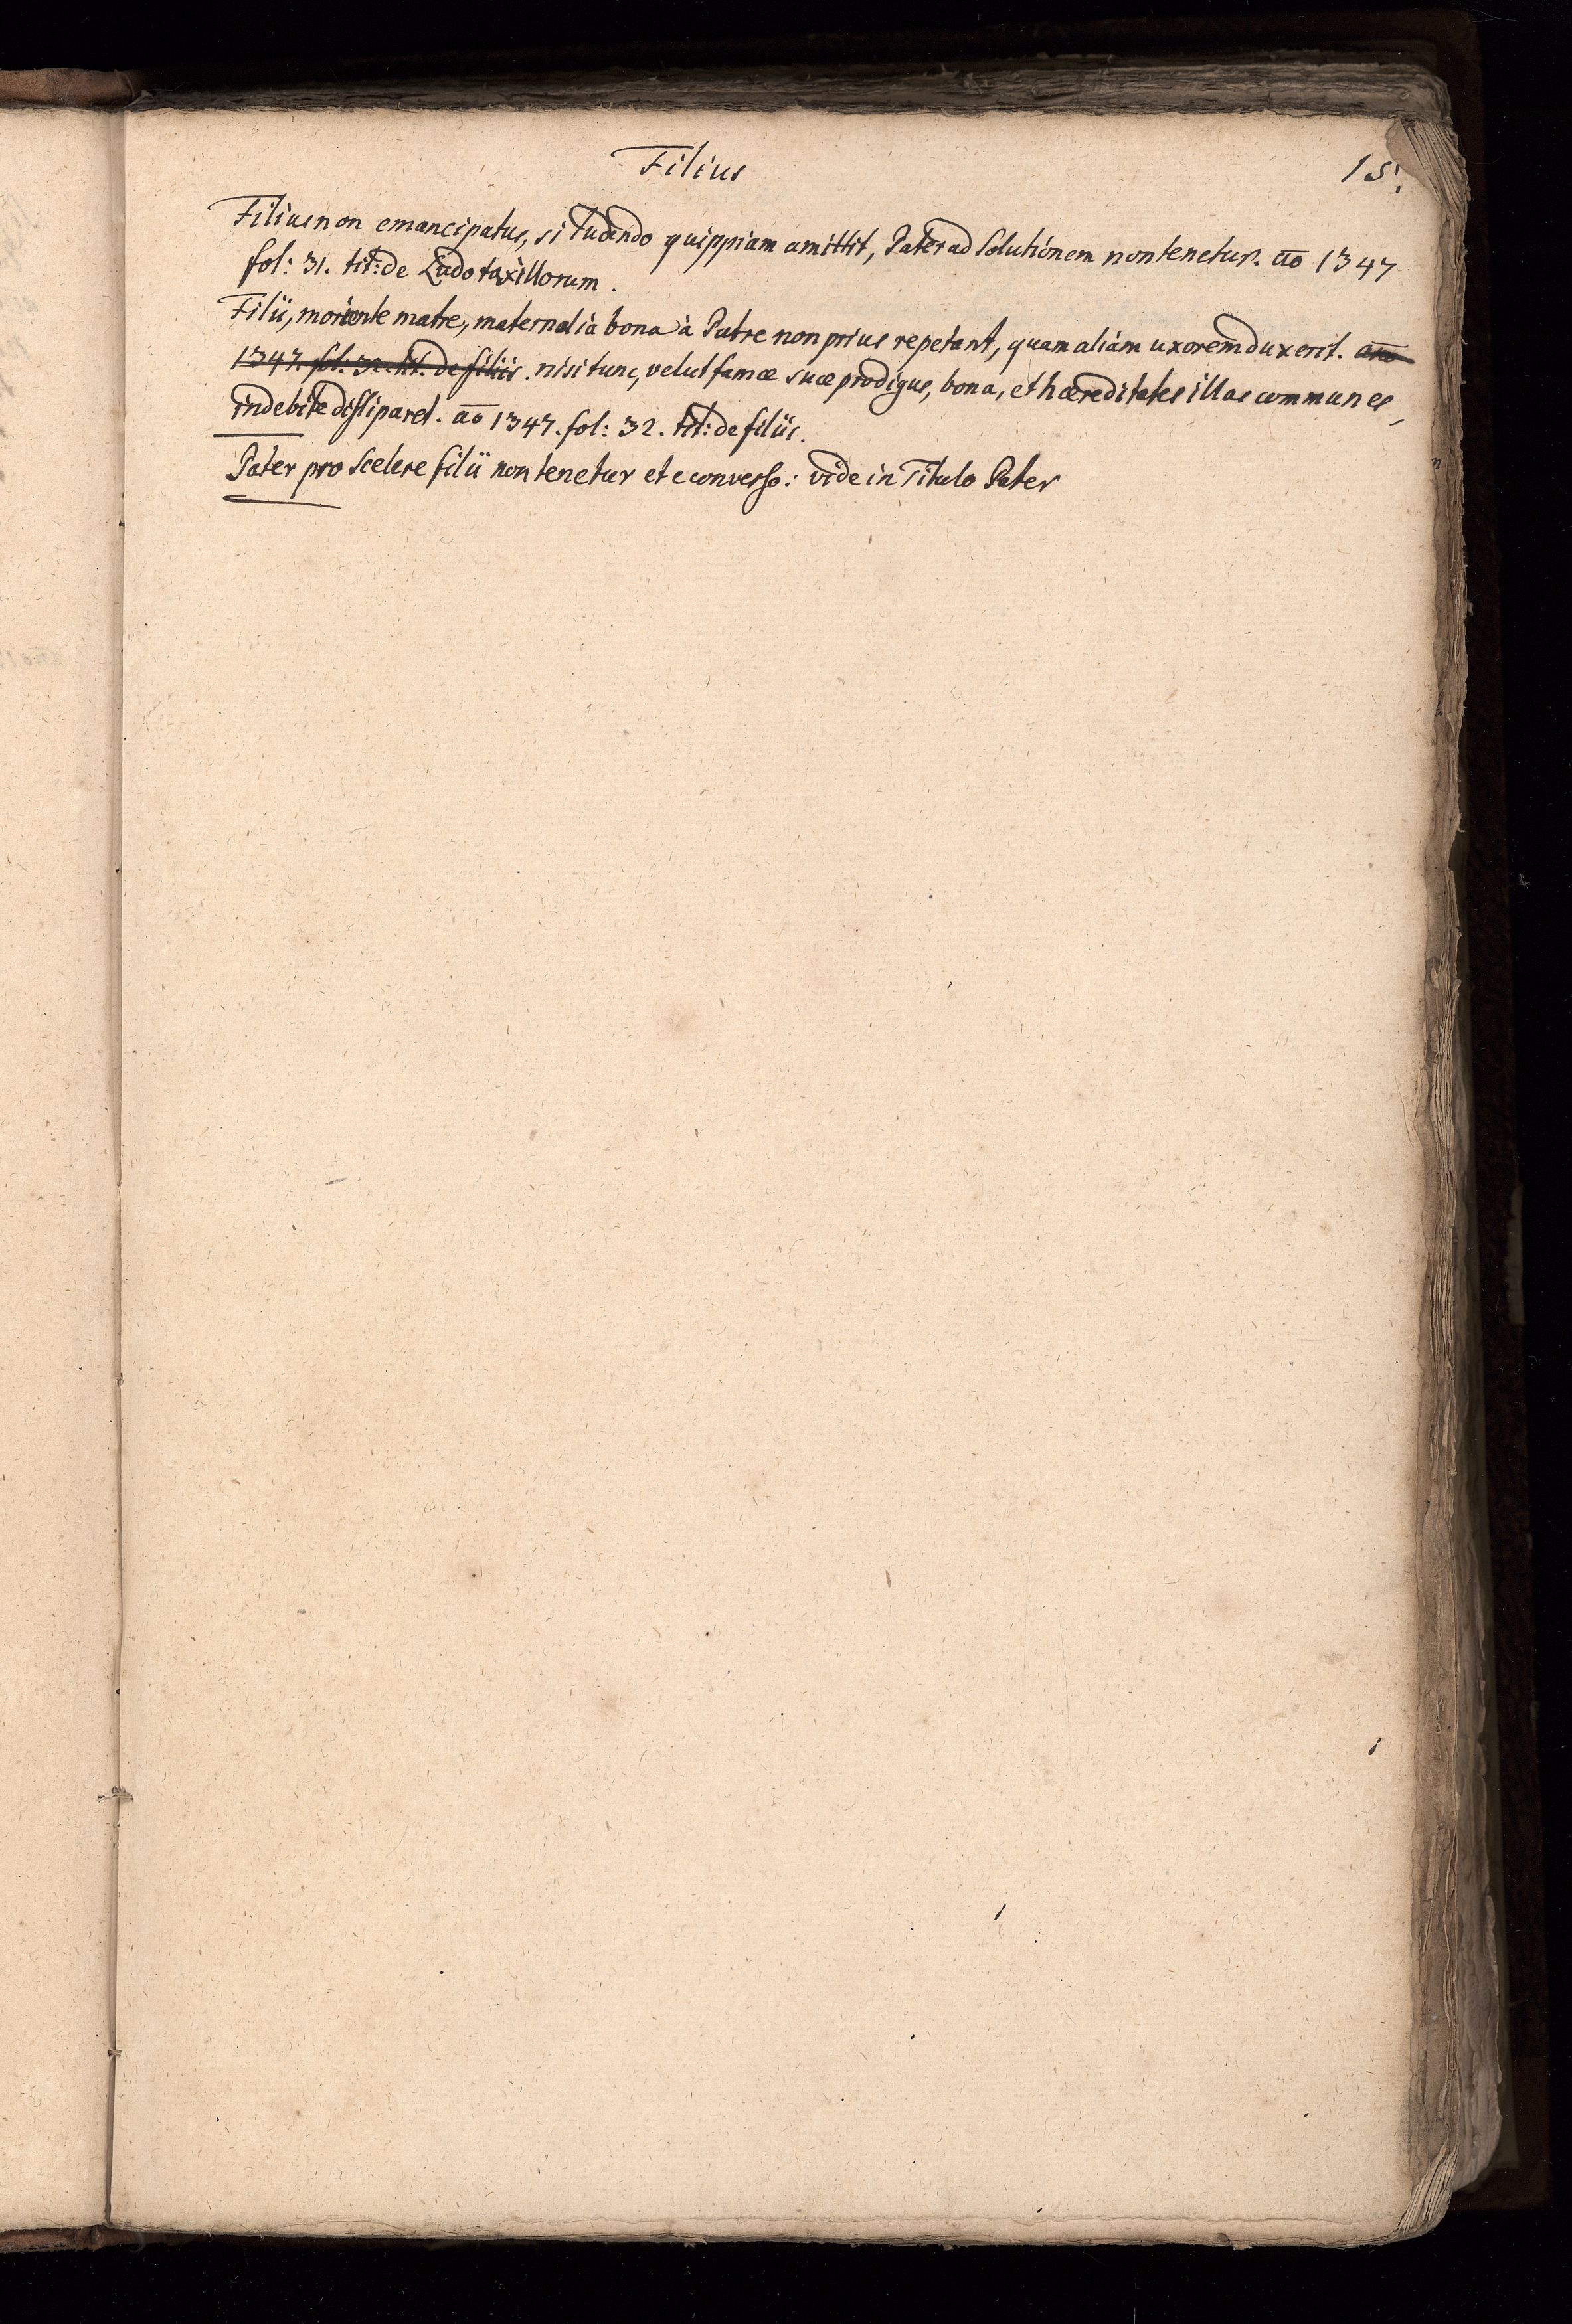 Filius
15.
Filius non emancipatus, si ludendo quippiam amittit, Pater ad Solutionem non tenetur. ao 1347
fol: 31. tit: de Ludo taxillorum.
Filii, moriente matre, maternalia bona à Patre non prius repetant, quam aliam uxorem duxerit. ano
1347. fol: 32. tit. de filiis. nisi tunc, velut famæ suæ prodigus, bona, et hæreditates illas communes,
indebite dissiparet. ao 1347. fol: 32. tit: de filiis.
Pater pro scelere filii non tenetur et e converso: vide in Titulo Pater